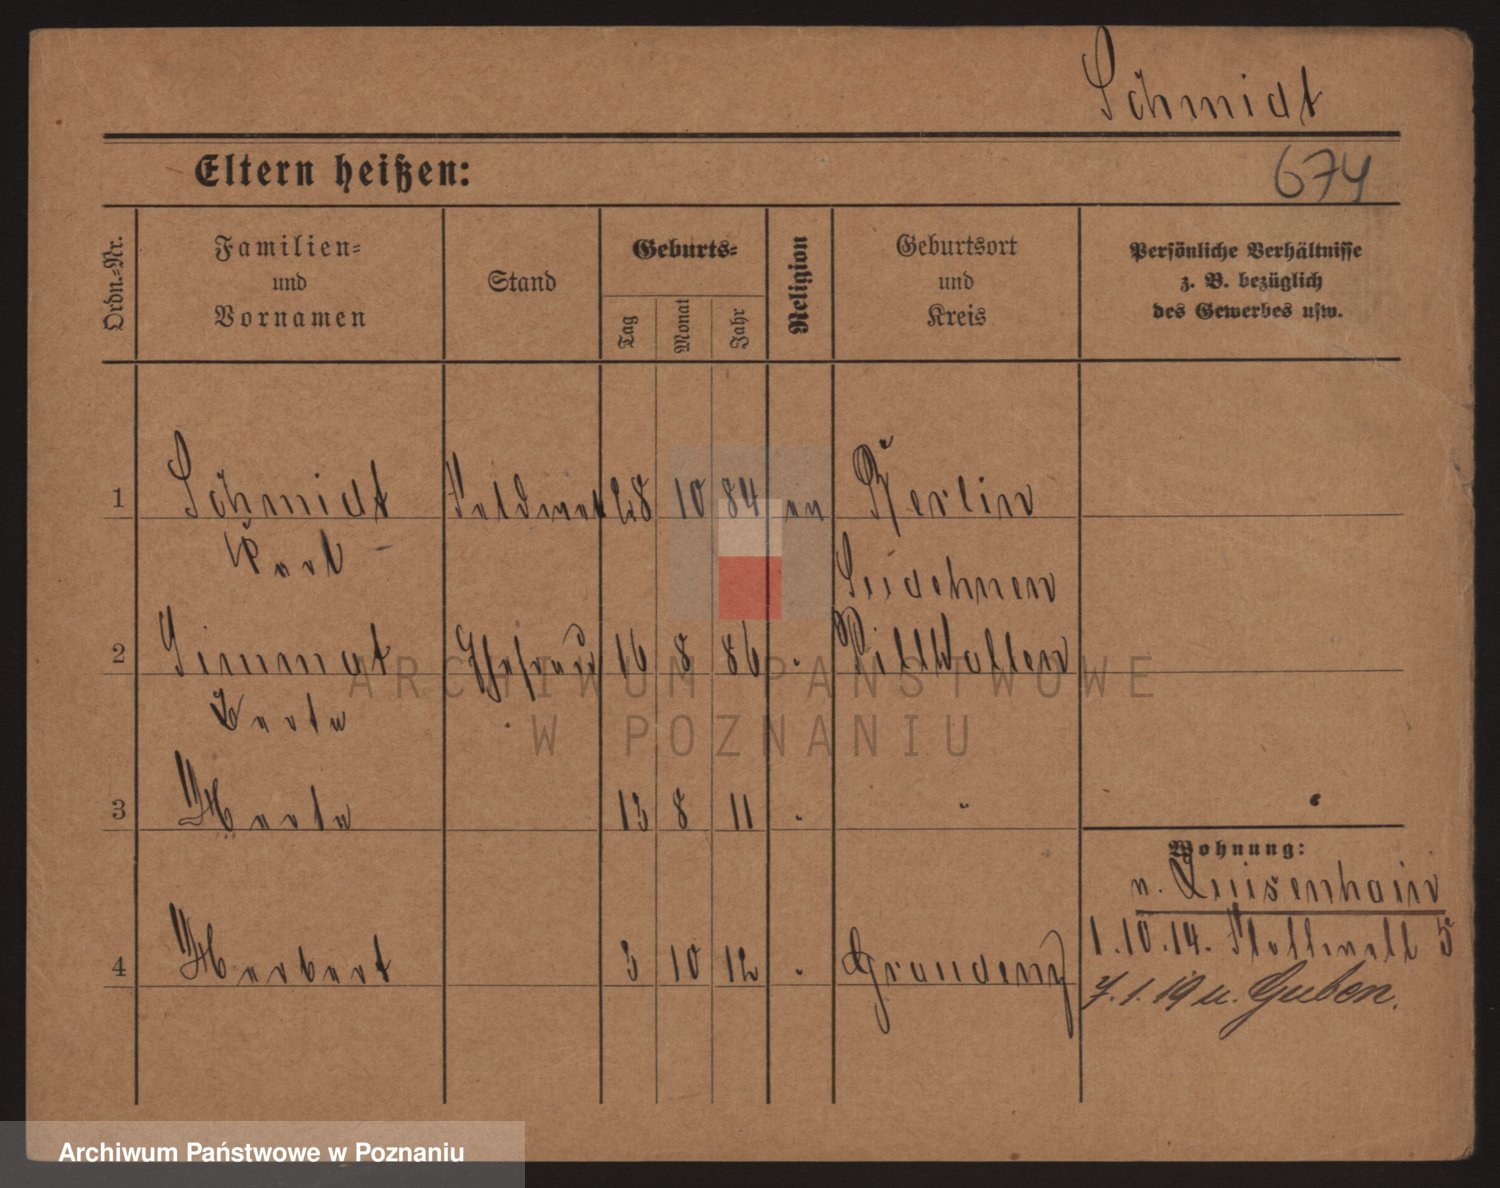 Schmidt
Eltern heißen:
674
Ordn.=Nr.
Familien=
und
Vornamen
Stand
Geburts=
Tag
Monat
Jahr
Religion
Geburtsort
und
Kreis
Persönliche Verhältnisse
z. B. bezüglich
des Gewerbes usw.
1 Schmidt 28 10 84 ev Berlin
Karl
2 Ehefrau 16 8 86 " Pillkallen
Berta
3 Herta 13 8 11 " "
Wohnung:
v. Luisenhain
4 Herbert 3 10 12 " Graudenz
1.10.14. 5
7.1.19 n. Guben.
ARCHIWUM PAŃSTWOWE
W POZNANIU
Archiwum Państwowe w Poznaniu